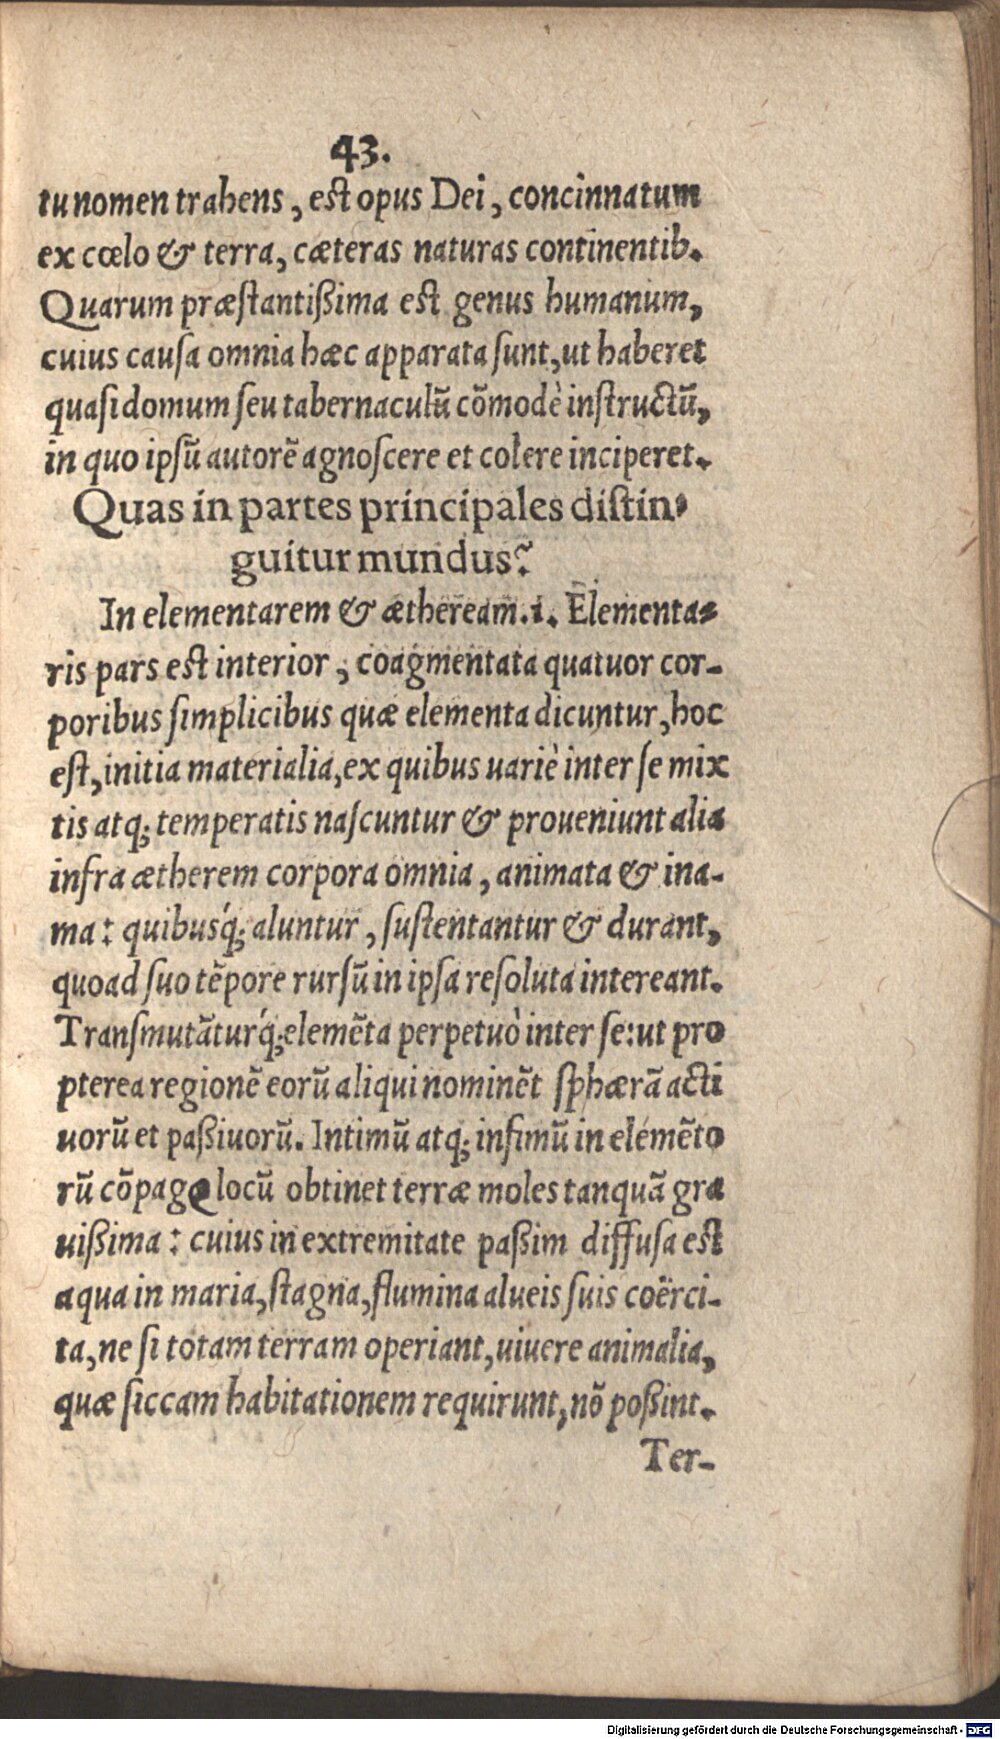 43.
tu nomen trahens, est opus Dei, concinnatum
ex cœlo & terra, cæteras naturas continentib.
Quarum præstantißima est genus humanum,
cuius causa omnia hæc apparata sunt, ut haberet
quasi domum seu tabernaculũ cõmodè instructũ,
in quo ipsũ autorẽ agnoscere et colere inciperet.
Quas in partes principales distin-
guitur mundus?
In elementarem & ætheream. 1. Elementa-
ris pars est interior, coagmentata quatuor cor-
poribus simplicibus quæ elementa dicuntur, hoc
est, initia materialia, ex quibus uariè inter se mix
tis atq; temperatis nascuntur & proueniunt alia
infra ætherem corpora omnia, animata & ina-
ma: quibusq́; aluntur, sustentantur & durant,
quoad suo tẽpore rursũ in ipsa resoluta intereant.
Transmutãturq́; elemẽta perpetuò inter se: ut pro
pterea regionẽ eorũ aliqui nominẽt sphærã acti
uorũ et paßiuorũ. Intimũ atq; infimũ in elemẽto
rũ cõpage locũ obtinet terræ moles tanquã gra
uißima: cuius in extremitate paßim diffusa est
aqua in maria, stagna, flumina alueis suis coërci-
ta, ne si totam terram operiant, uiuere animalia,
quæ siccam habitationem requirunt, nõ poßint.
Ter-
Digitalisierung gefördert durch die Deutsche Forschungsgemeinschaft - DFG